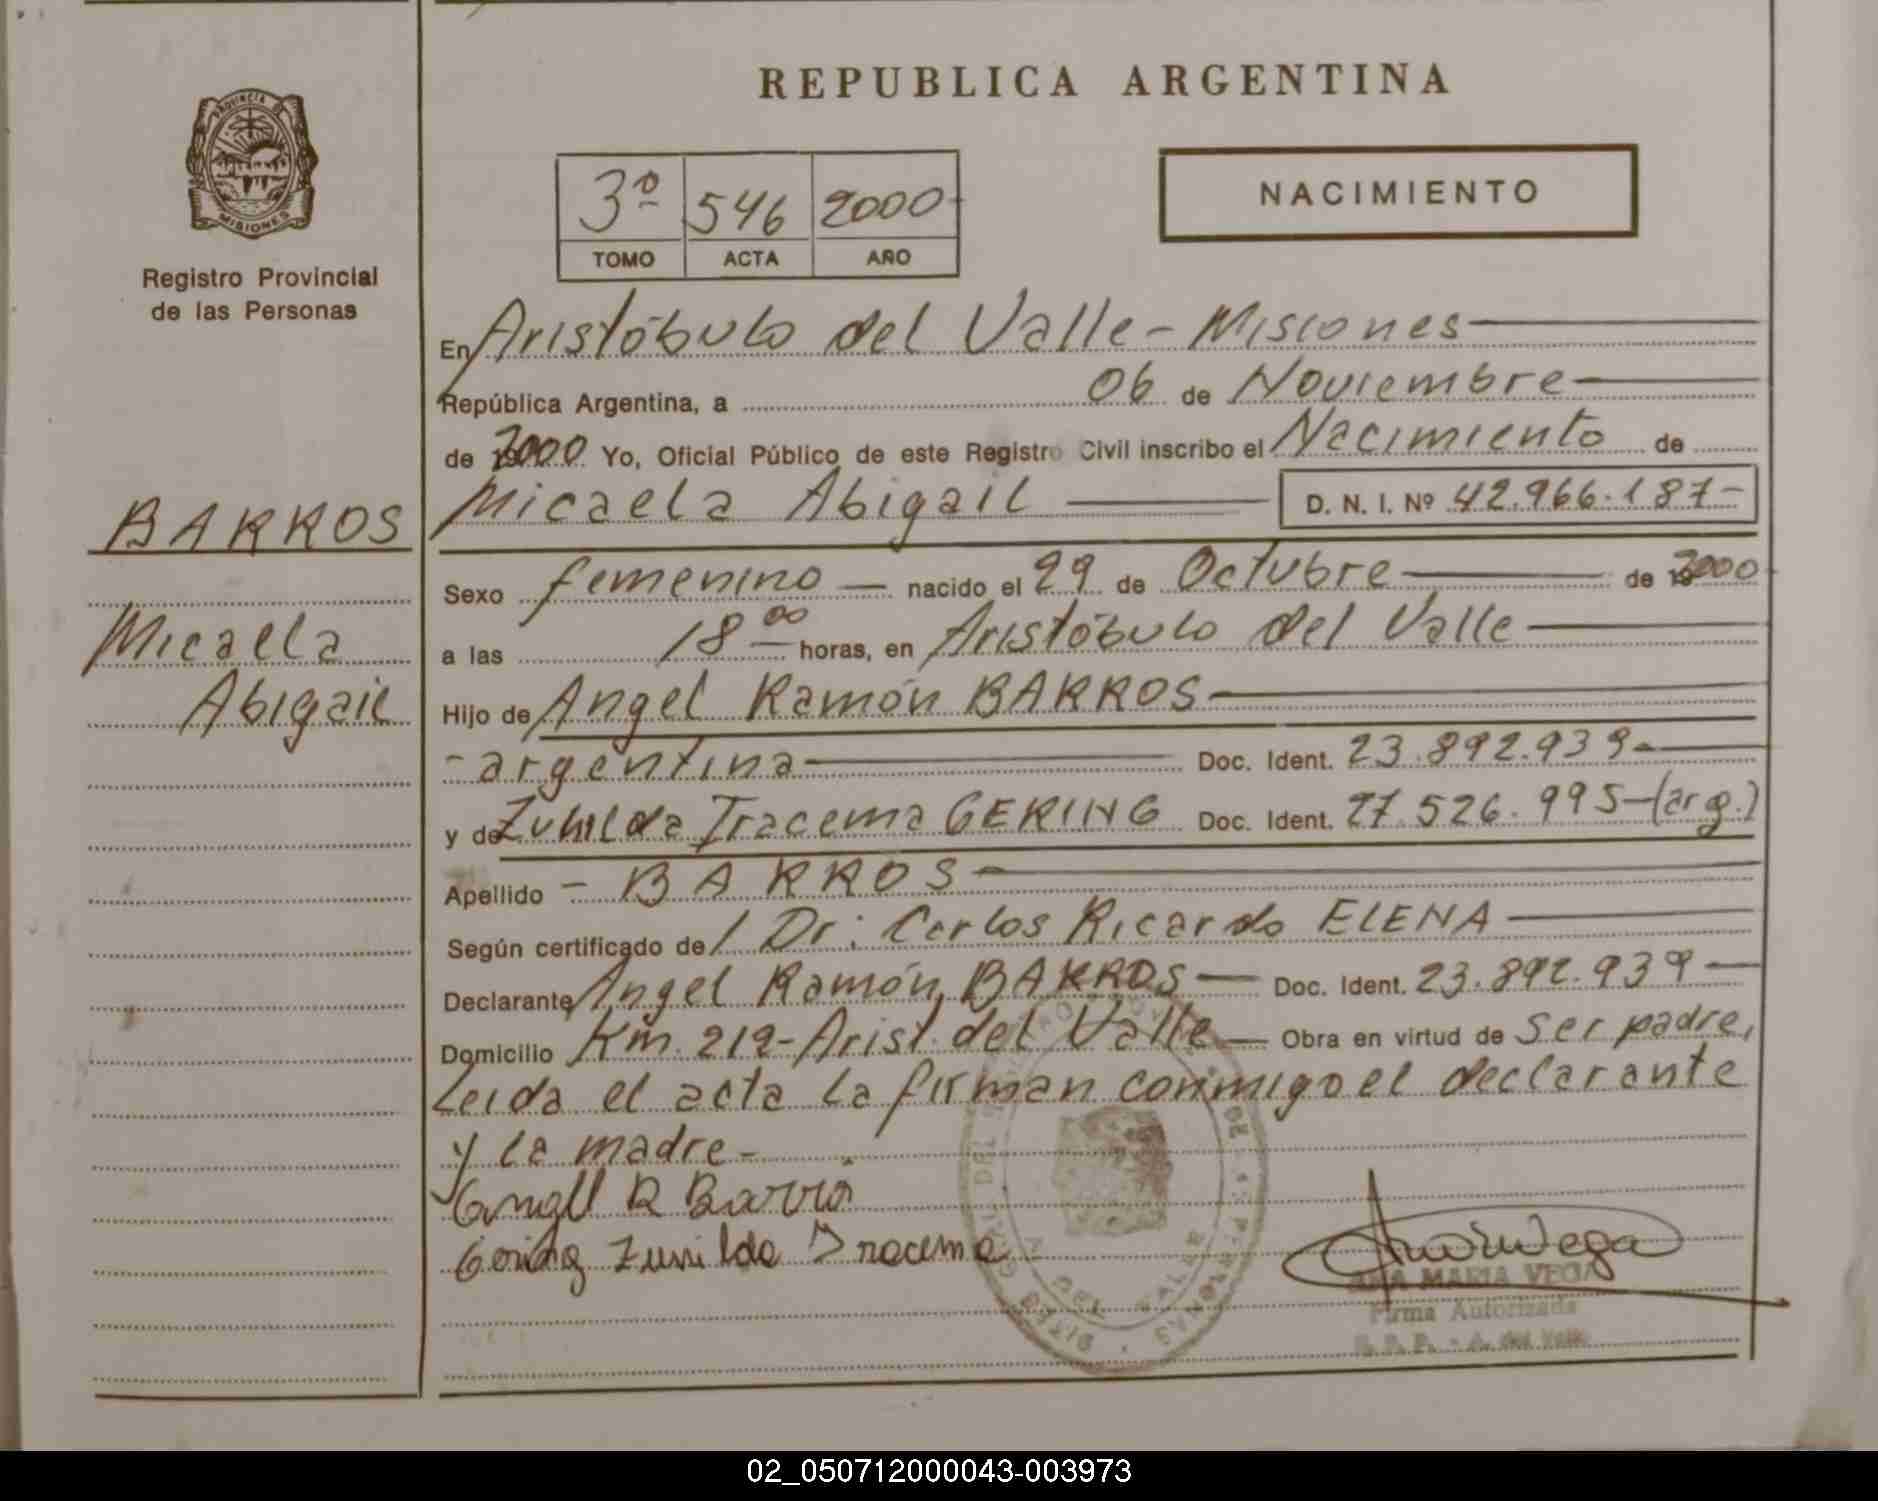 REPUBLICA ARGENTINA
PROVINCIA DE
MISIONES
Registro Provincial
de las Personas
3º 546 2000
TOMO ACTA AÑO
NACIMIENTO
BARROS
Micaela
Abigail
En Aristóbulo del Valle - Misiones
República Argentina, a 06 de Noviembre
de 2000 Yo, Oficial Público de este Registro Civil inscribo el Nacimiento de
Micaela Abigail D. N. I. Nº 42.966.187-
Sexo femenino nacido el 29 de Octubre de 2000
a las 18 00 horas, en Aristóbulo del Valle
Hijo de Angel Ramón BARROS
- argentina Doc. Ident. 23.892.939-
y de Iracema GERING Doc. Ident. 27.526.995-(arg.)
Apellido - BARROS
Según certificado de / Dr: Carlos Ricardo ELENA
Declarante Angel Ramón BARROS Doc. Ident. 23.892.939
Domicilio Km. 219-Arist. del Valle Obra en virtud de ser padre,
Leida el acta la firman conmigo el declarante
y la madre -
Angel R Barro
Gering Zunilda Iracema
ANA MARIA VEGA
Firma Autorizada
R. P. P. - A. del Valle
02_050712000043-003973